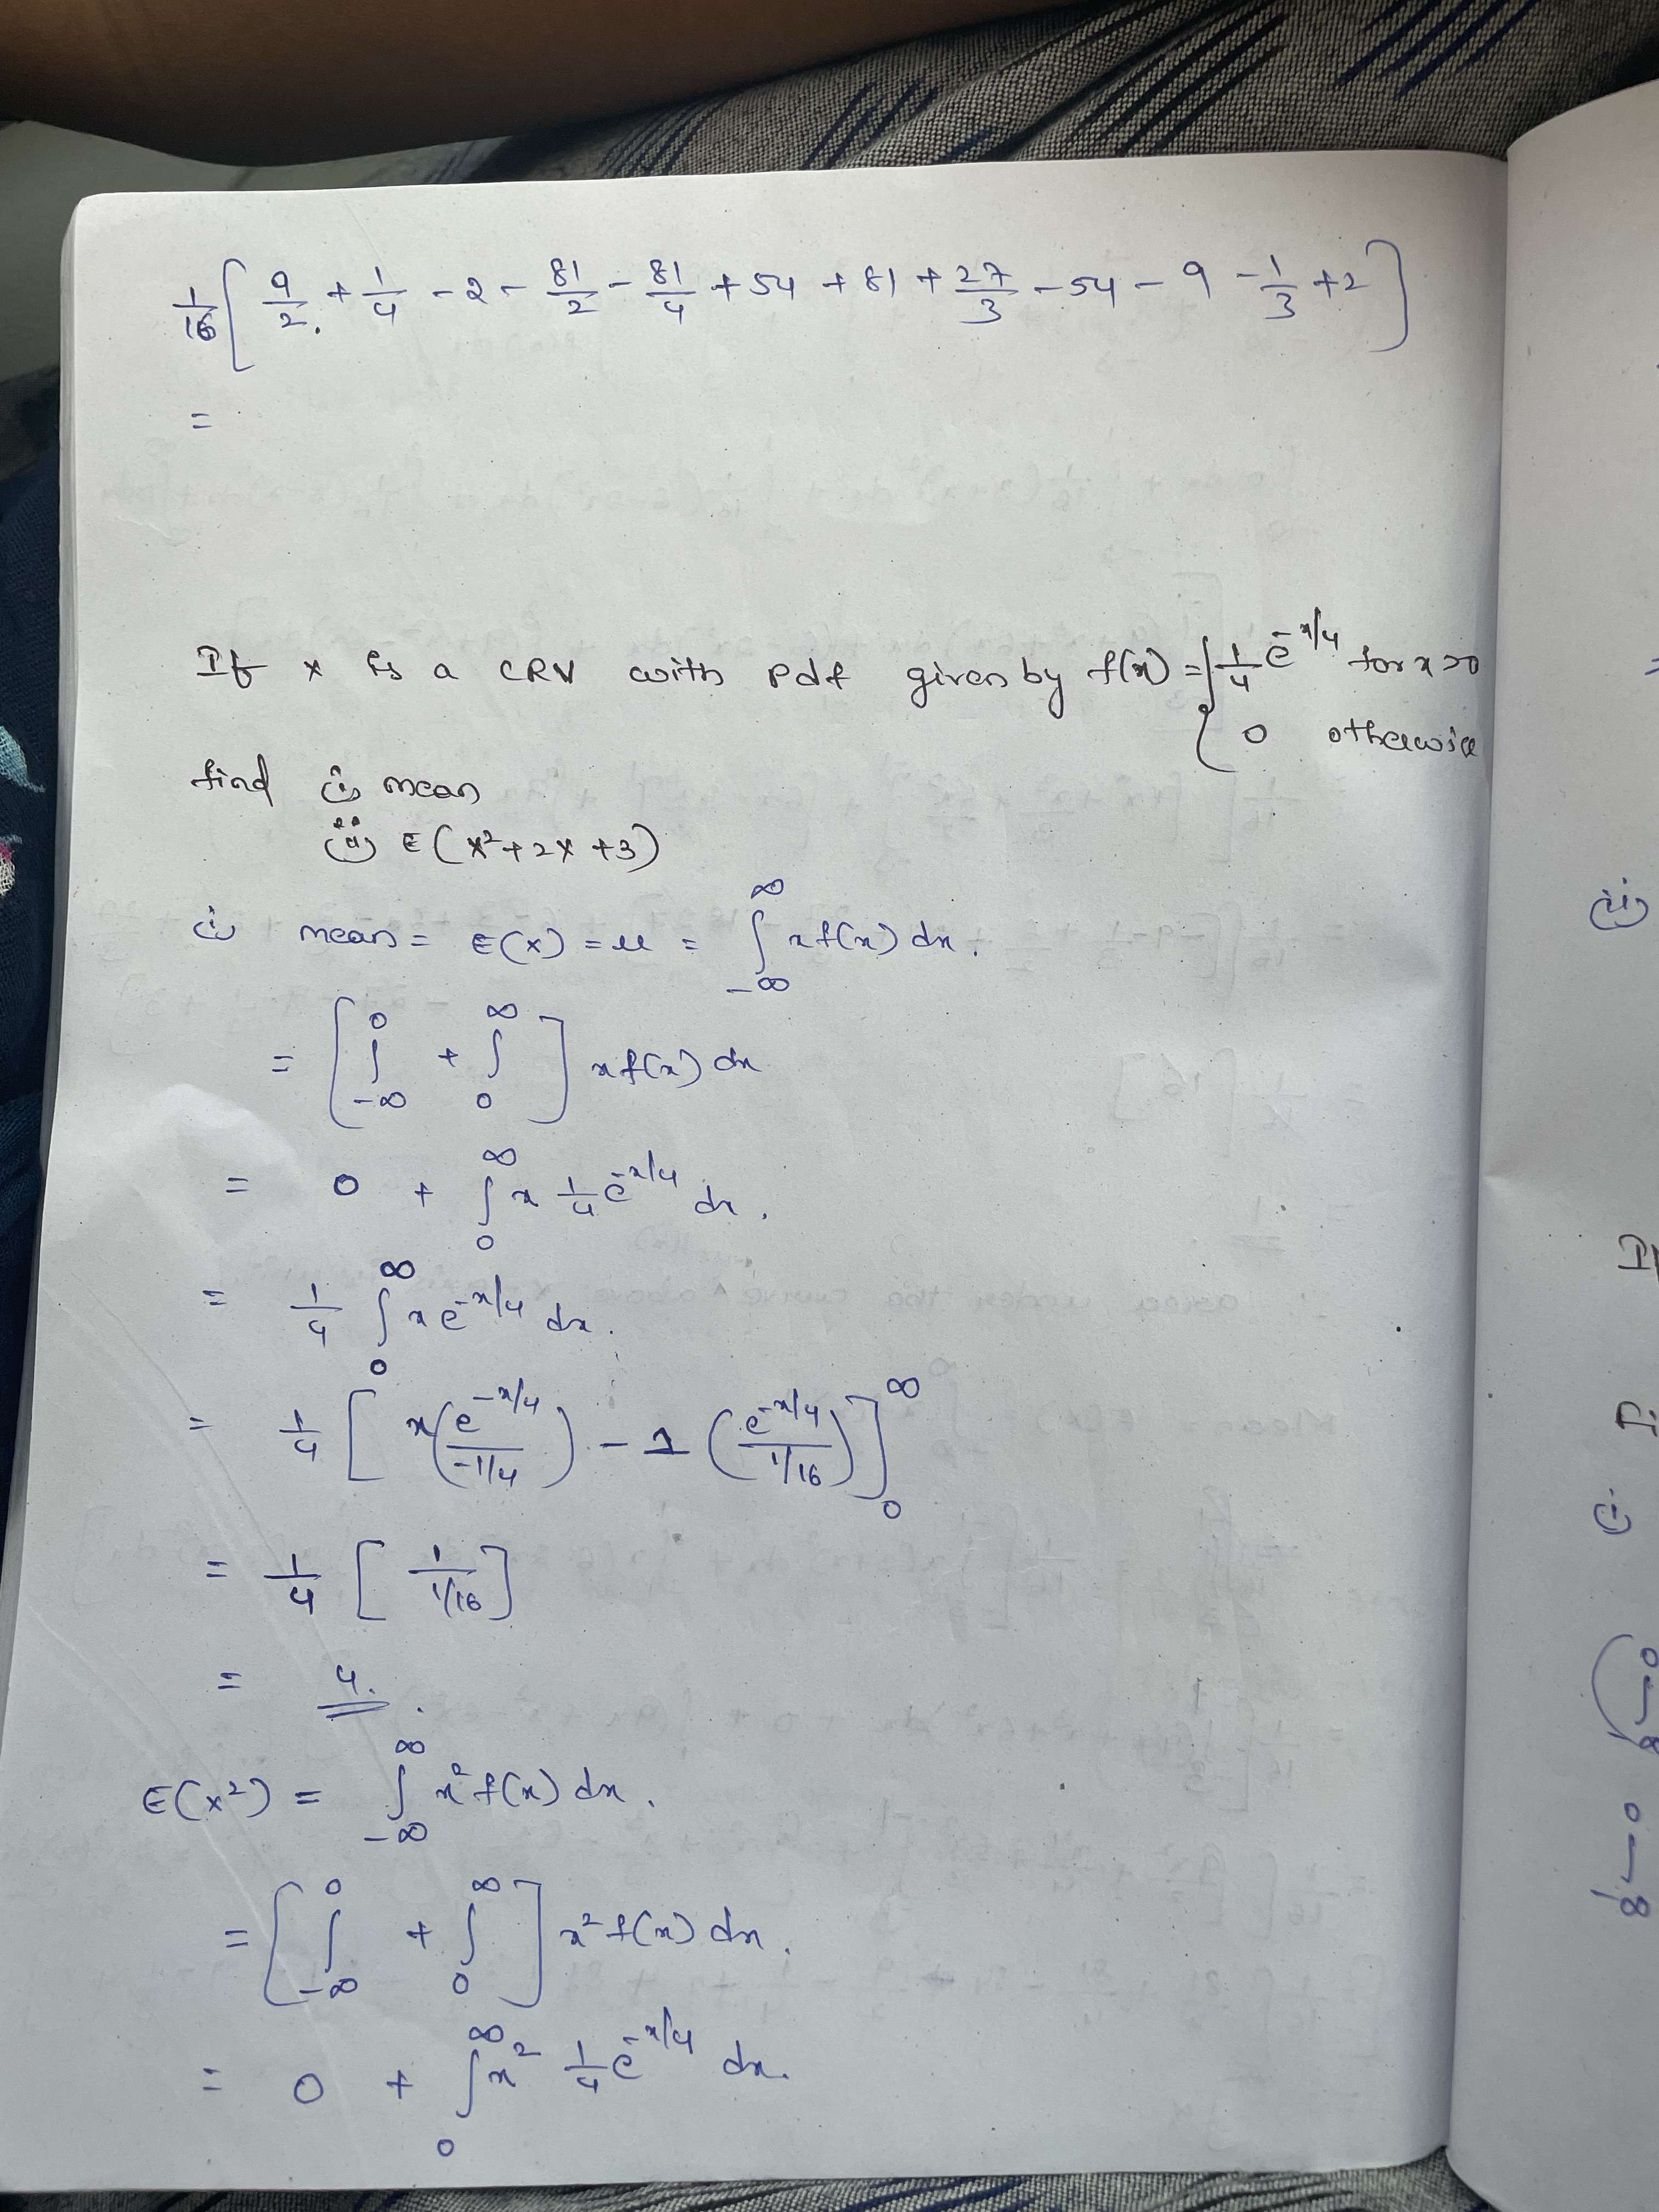 1/16 [ 9/2 + 1/4 - 2 - 81/2 - 81/4 + 54 + 81 + 27/3 - 54 - 9 - 1/3 + 2 ]
=
If x is a CRV with Pdf given by f(x) = { 1/4 e^{-x/4} for x>0
0 otherwise
find (i) mean
(ii) E(x²+2x+3)
(i) mean = E(x) = μ = ∫_{-∞}^{∞} x f(x) dx.
= [ ∫_{-∞}^{0} + ∫_{0}^{∞} ] x f(x) dx
= 0 + ∫_{0}^{∞} x 1/4 e^{-x/4} dx.
= 1/4 ∫_{0}^{∞} x e^{-x/4} dx.
= 1/4 [ x ( e^{-x/4} / -1/4 ) - 1 ( e^{-x/4} / 1/16 ) ]_{0}^{∞}
= 1/4 [ 1 / 1/16 ]
= 4.
E(x²) = ∫_{-∞}^{∞} x² f(x) dx.
= [ ∫_{-∞}^{0} + ∫_{0}^{∞} ] x² f(x) dx.
= 0 + ∫_{0}^{∞} x² 1/4 e^{-x/4} dx.
(ii)
(i)